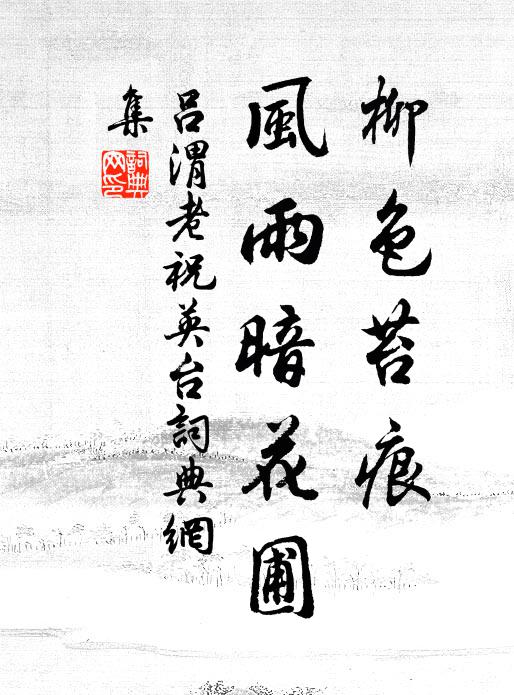 柳色苔痕
風雨暗花圃
呂渭老祝英台詞典網
集
詞典
网印